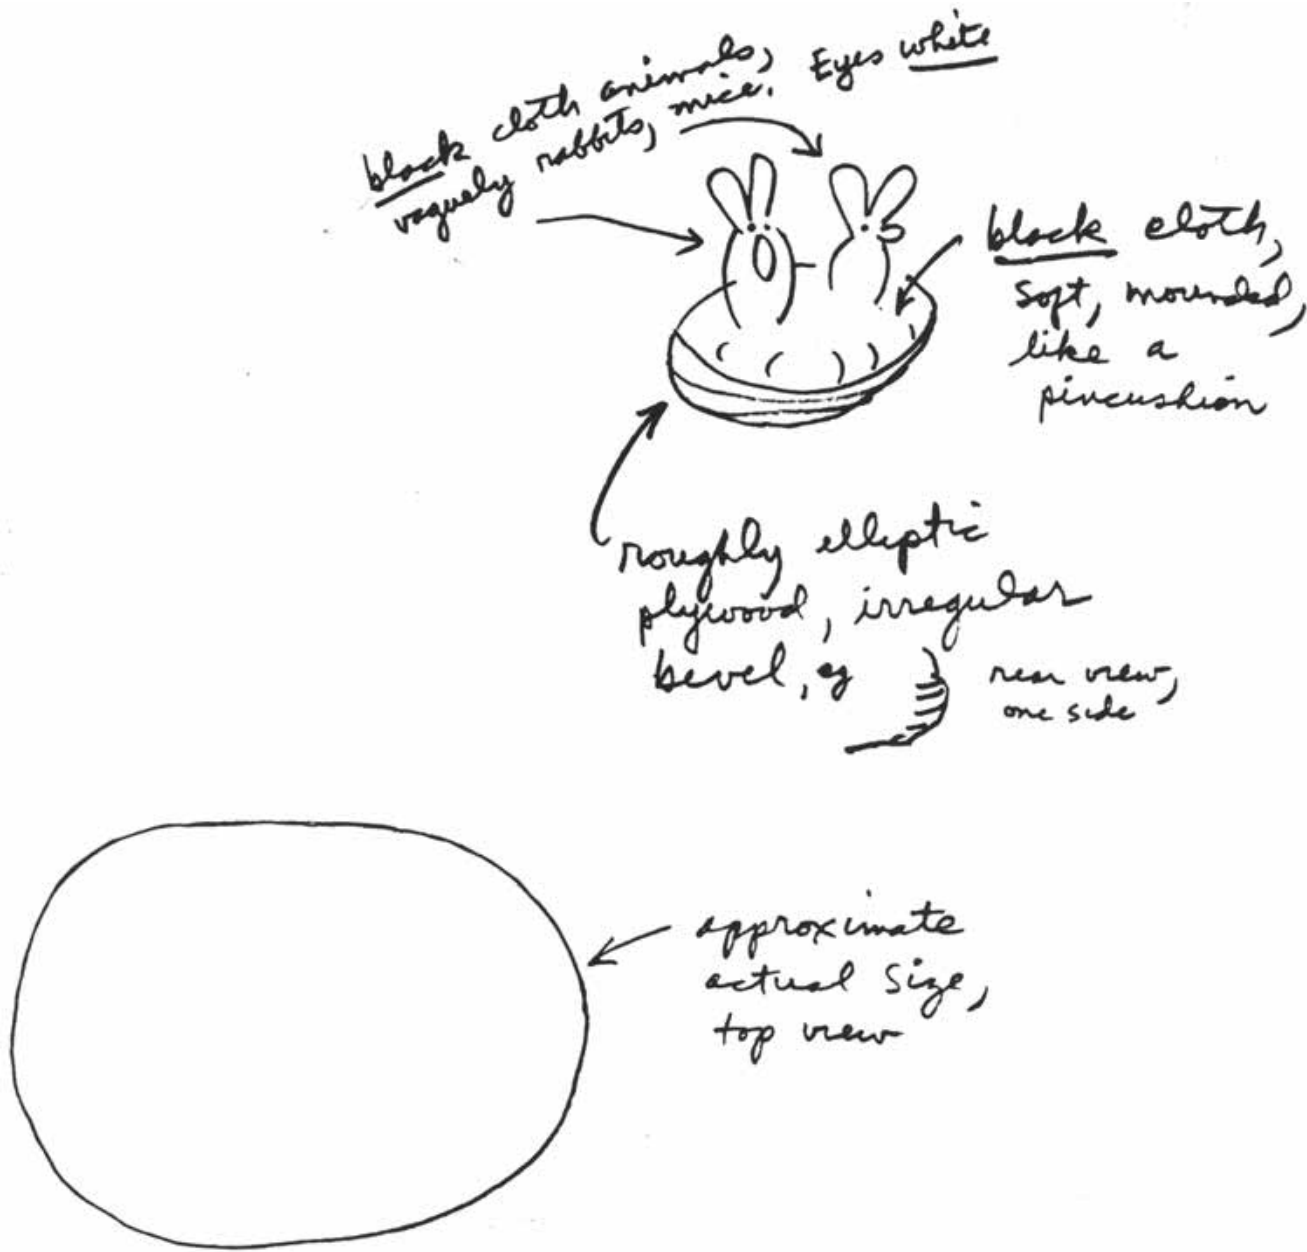 black cloth animals,
vaguely rabbits, mice. Eyes white
black cloth,
soft, mounded,
like a
pincushion
roughly elliptic
plywood, irregular
bevel, eg
rear view,
one side
approximate
actual size,
top view